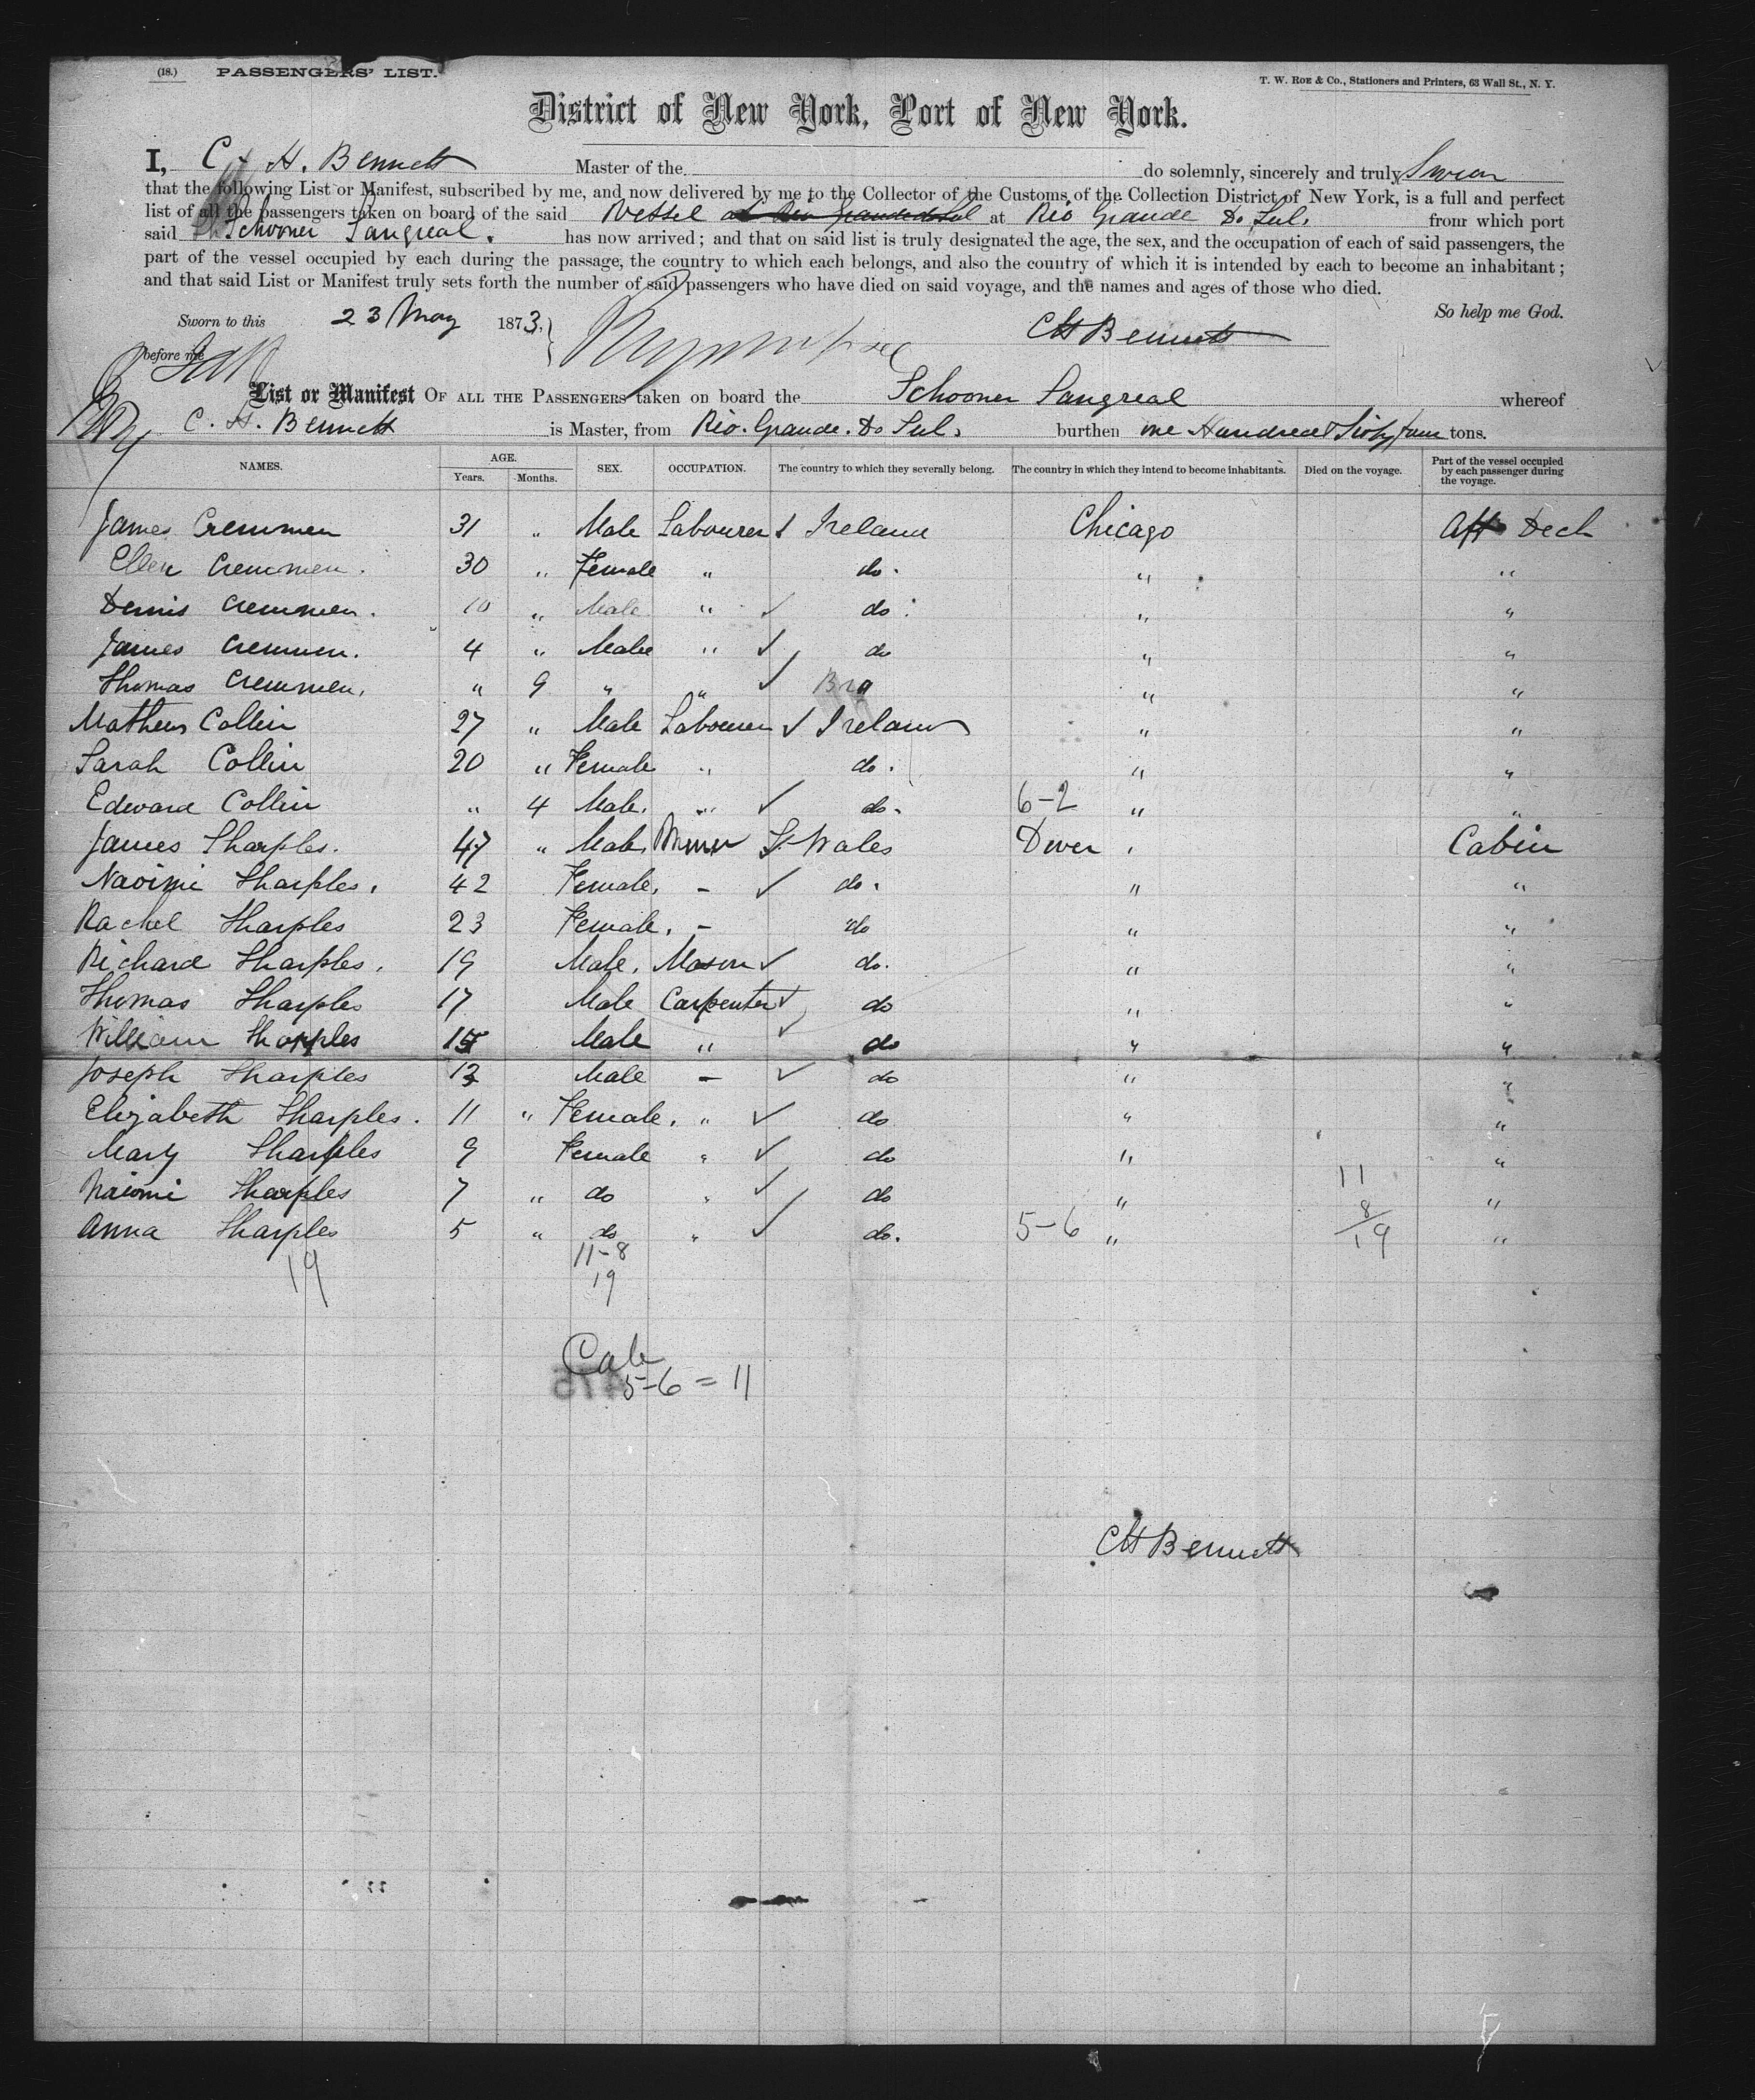 (18.) PASSENGERS' LIST.
T. W. ROE & Co., Stationers and Printers, 63 Wall St., N. Y.
District of New York, Port of New York.
I, C. H. Bennett Master of the do solemnly, sincerely and truly Swear
that the following List or Manifest, subscribed by me, and now delivered by me to the Collector of the Customs of the Collection District of New York, is a full and perfect
list of all the passengers taken on board of the said Vessel at Rio Grande do Sul at Rio Grande Do Sul, from which port
said Schooner Sangreal. has now arrived; and that on said list is truly designated the age, the sex, and the occupation of each of said passengers, the
part of the vessel occupied by each during the passage, the country to which each belongs, and also the country of which it is intended by each to become an inhabitant;
and that said List or Manifest truly sets forth the number of said passengers who have died on said voyage, and the names and ages of those who died.
So help me God.
Sworn to this 23 May 1873,
CH Bennett
before me
List or Manifest OF ALL THE PASSENGERS taken on board the Schooner Sangreal whereof
C. H. Bennett is Master, from Rio. Grande. Do Sul. burthen one Hundred Sixty four tons.
NAMES. AGE. Years. Months. SEX. OCCUPATION. The country to which they severally belong. The country in which they intend to become inhabitants. Died on the voyage. Part of the vessel occupied by each passenger during the voyage.
James Cremmen 31 " Male Labourer ✓ Ireland Chicago Aft Deck
Ellen Cremmen. 30 " Female " do. " "
Dennis Cremmen. 10 " Male " ✓ do. " "
James Cremmen. 4 " Male " ✓ do " "
Thomas Cremmen. " 9 " " ✓ Bra " "
Mathew Collin 27 " Male Labourer ✓ Ireland " "
Sarah Collin 20 " Female " do. " "
Edward Collin " 4 Male. " ✓ do. 6-2 " "
James Sharples. 47 " Male Miner S. Wales Dover " Cabin
Naoimi Sharples. 42 Female. - ✓ do. " "
Rachel Sharples 23 Female. - do " "
Richard Sharples. 19 Male. Mason ✓ do. " "
Thomas Sharples 17 Male Carpenter ✓ do " "
William Sharples 15 Male " ✓ do " "
Joseph Sharples 13 Male - ✓ do " "
Elizabeth Sharples. 11 " Female. " ✓ do " "
Mary Sharples 9 Female " ✓ do " "
Naiomi Sharples 7 " do " ✓ do " 11 "
Anna Sharples 5 " do " ✓ do. 5-6 " 8 "
19
19 11-8
19
Cab
5-6 = 11
CH Bennett